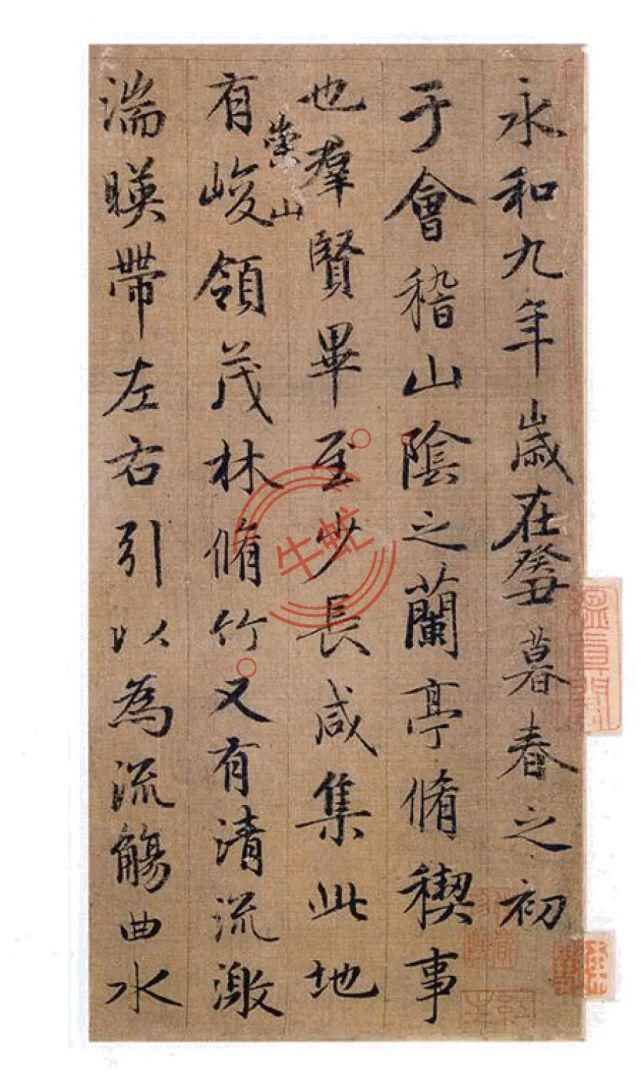 永和九年歲在癸丑暮春之初
于會稽山陰之蘭亭脩稧事
也羣賢畢至少長咸集此地
崇山
有峻領茂林脩竹又有清流激
湍暎帶左右引以為流觴曲水
牛蚊